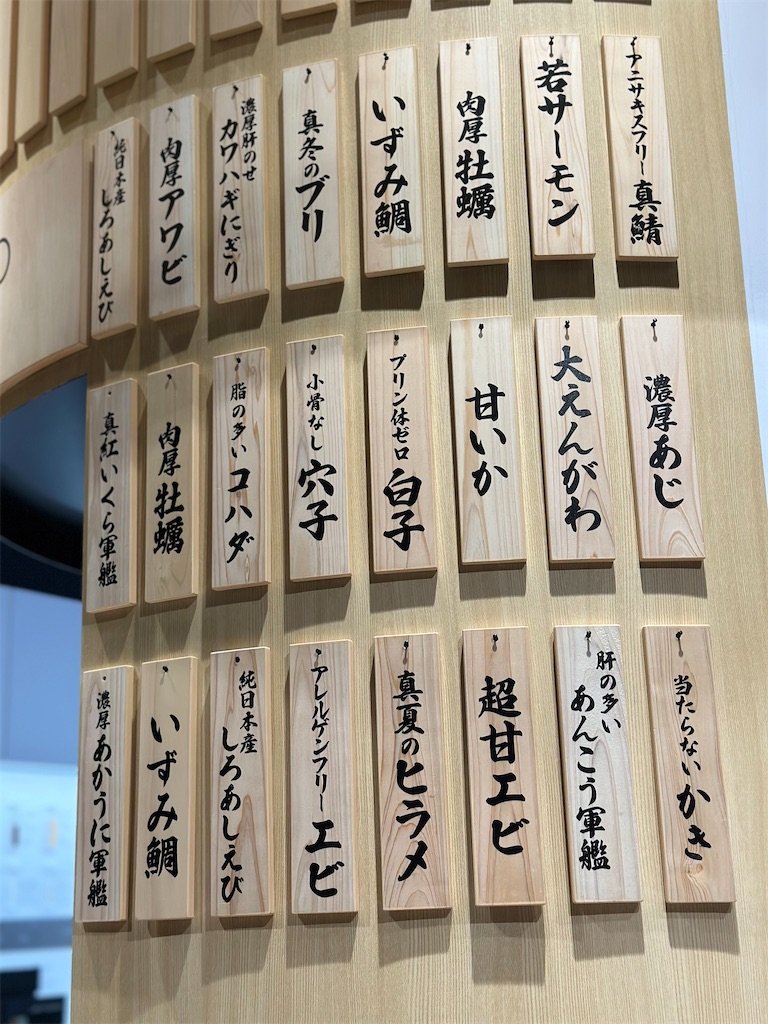 アニサキスフリー真鯖
若サーモン
肉厚牡蠣
いずみ鯛
真冬のブリ
濃厚肝のせ
カワハギにぎり
肉厚アワビ
純日本産
しろあしえび
濃厚あじ
大えんがわ
甘いか
プリン体ゼロ白子
小骨なし穴子
脂の多いコハダ
肉厚牡蠣
真紅いくら軍艦
当たらないかき
肝の多い
あんこう軍艦
超甘エビ
真夏のヒラメ
アレルゲンフリーエビ
純日本産
しろあしえび
いずみ鯛
濃厚あかうに軍艦